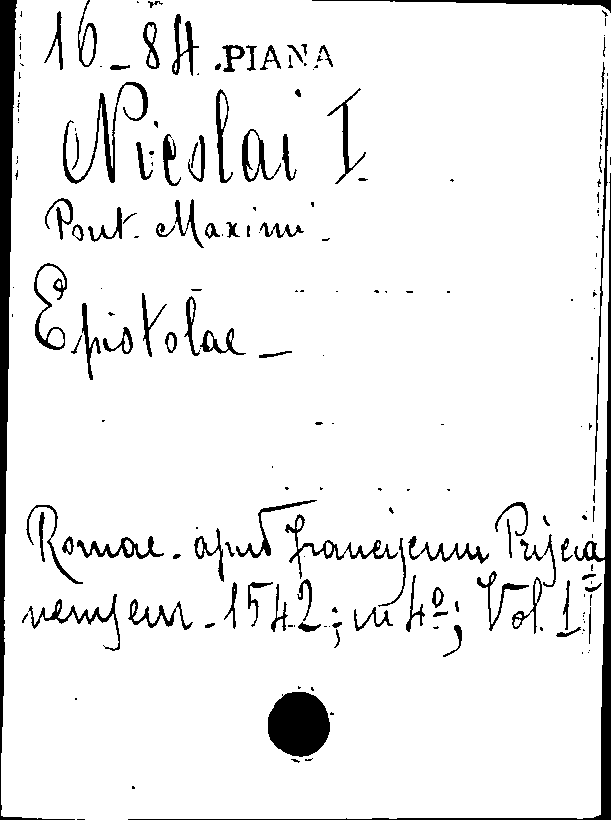 16-84.PIANA
Nicolai I.
Pont. Maximi-
Epistolae-
Romae. apud Franciscum Priscia=
nensem-1542; in 4º; Vol. 1